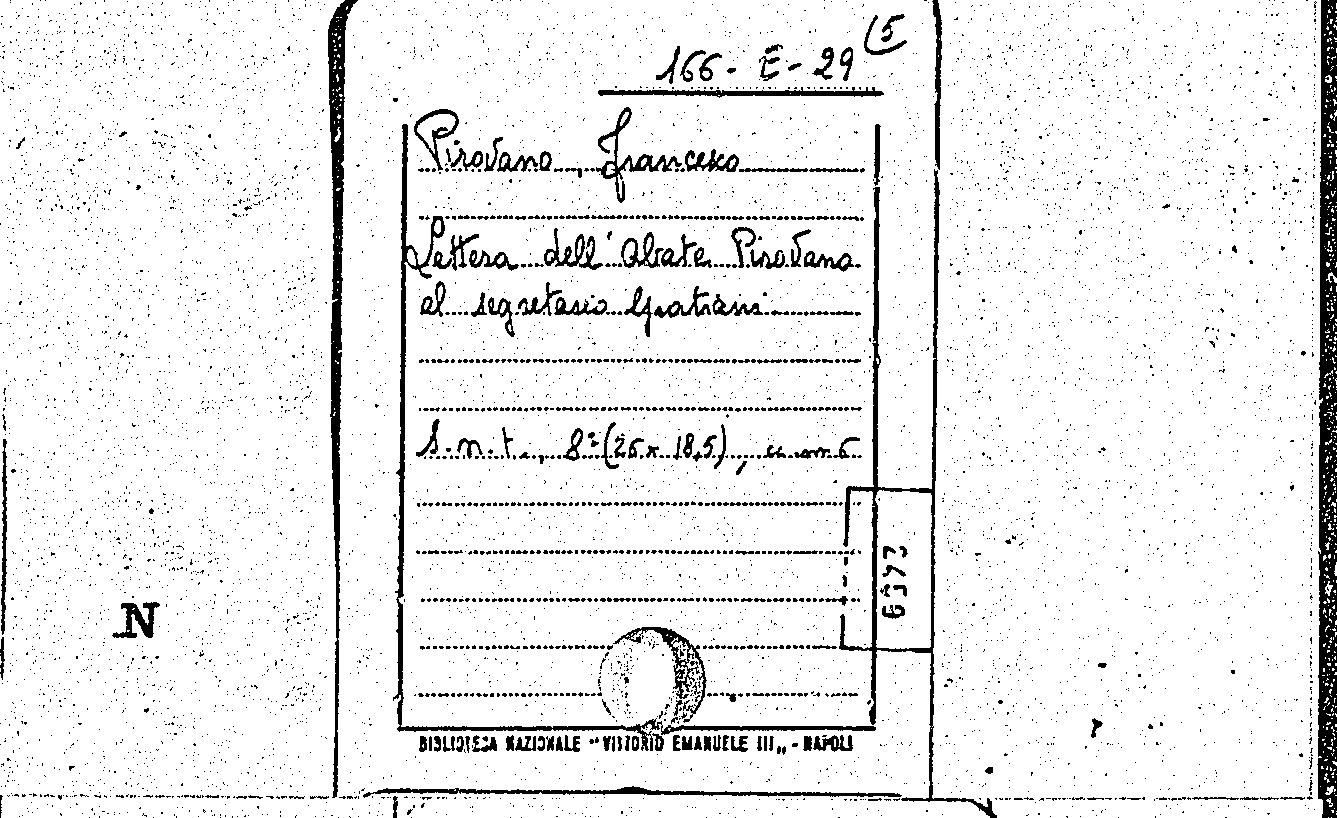 166 - E - 29 (5
Pirovano, Francesco
Lettera dell'Abate Pirovano
al segretario Gratiani.
S.n.t., 8º (26 x 18,5), cc. nn 6
N
BIBLIOTECA NAZIONALE "VITTORIO EMANUELE III„ - NAPOLI